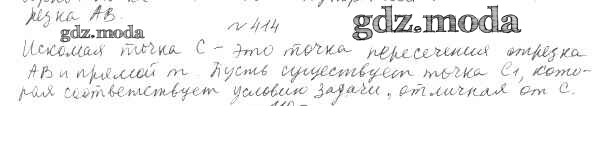 резка АВ.
№ 414
gdz.moda
gdz.moda
Искомая точка С - это точка пересечения отрезка
АВ и прямой m. Пусть существует точка С1, кото-
рая соответствует условию задачи, отличная от С.